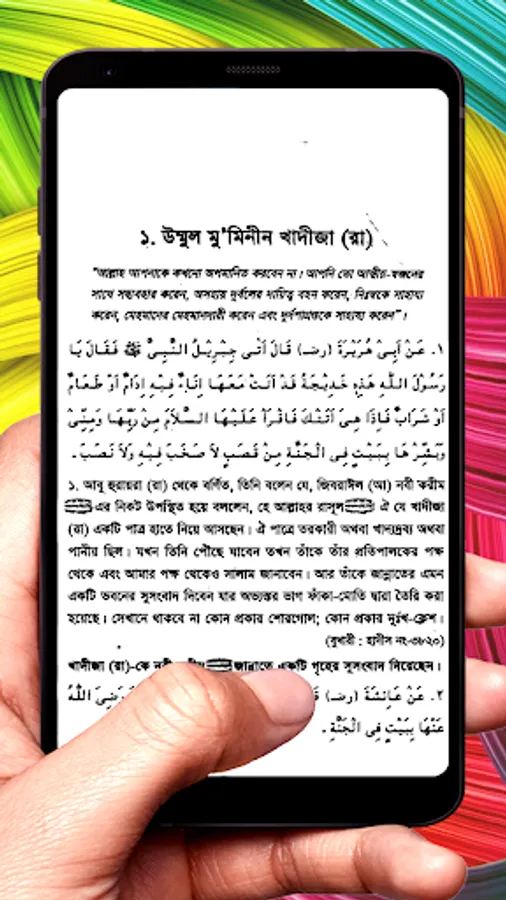 ১. উম্মুল মু'মিনীন খাদীজা (রা)
"আল্লাহ আপনাকে কখনো অপমানিত করবেন না। আপনি তো আত্মীয়-স্বজনের
সাথে সদ্ব্যবহার করেন, অসহায় দুর্বলের দায়িত্ব বহন করেন, নিঃস্বকে সাহায্য
করেন, মেহমানের মেহমানদারী করেন এবং দুর্দশাগ্রস্তকে সাহায্য করেন"।
١. عَنْ اَبِىْ هُرَيْرَةَ (رضـ) قَالَ اَتٰى جِبْرِيْلُ النَّبِىَّ ﷺ فَقَالَ يَا
رَسُوْلَ اللّٰهِ هٰذِهِ خَدِيْجَةُ قَدْ اَتَتْ مَعَهَا اِنَاءٌ فِيْهِ اِدَامٌ اَوْ طَعَامٌ
اَوْ شَرَابٌ فَاِذَا هِىَ اَتَتْكَ فَاقْرَأْ عَلَيْهَا السَّلَامَ مِنْ رَبِّهَا وَمِنِّىْ
وَبَشِّرْهَا بِبَيْتٍ فِى الْجَنَّةِ مِنْ قَصَبٍ لَا صَخَبَ فِيْهِ وَلَا نَصَبَ.
১. আবু হুরায়রা (রা) থেকে বর্ণিত, তিনি বলেন যে, জিবরাঈল (আ) নবী করীম
-এর নিকট উপস্থিত হয়ে বললেন, হে আল্লাহর রাসূল! ঐ যে খাদীজা
(রা) একটি পাত্র হাতে নিয়ে আসছেন। ঐ পাত্রে তরকারী অথবা খাদ্যদ্রব্য অথবা
পানীয় ছিল। যখন তিনি পৌছে যাবেন তখন তাঁকে তাঁর প্রতিপালকের পক্ষ
থেকে এবং আমার পক্ষ থেকেও সালাম জানাবেন। আর তাঁকে জান্নাতের এমন
একটি ভবনের সুসংবাদ দিবেন যার অভ্যন্তর ভাগ ফাঁকা-মোতি দ্বারা তৈরি করা
হয়েছে। সেখানে থাকবে না কোন প্রকার শোরগোল; কোন প্রকার দুঃখ-ক্লেশ।
(বুখারী : হাদীস নং-৩৮২০)
খাদীজা (রা)-কে নবী জান্নাতে একটি গৃহের সুসংবাদ দিয়েছেন।
٢. عَنْ عَائِشَةَ (رضـ) رَضِىَ اللّٰهُ
عَنْهَا بِبَيْتٍ فِى الْجَنَّةِ.